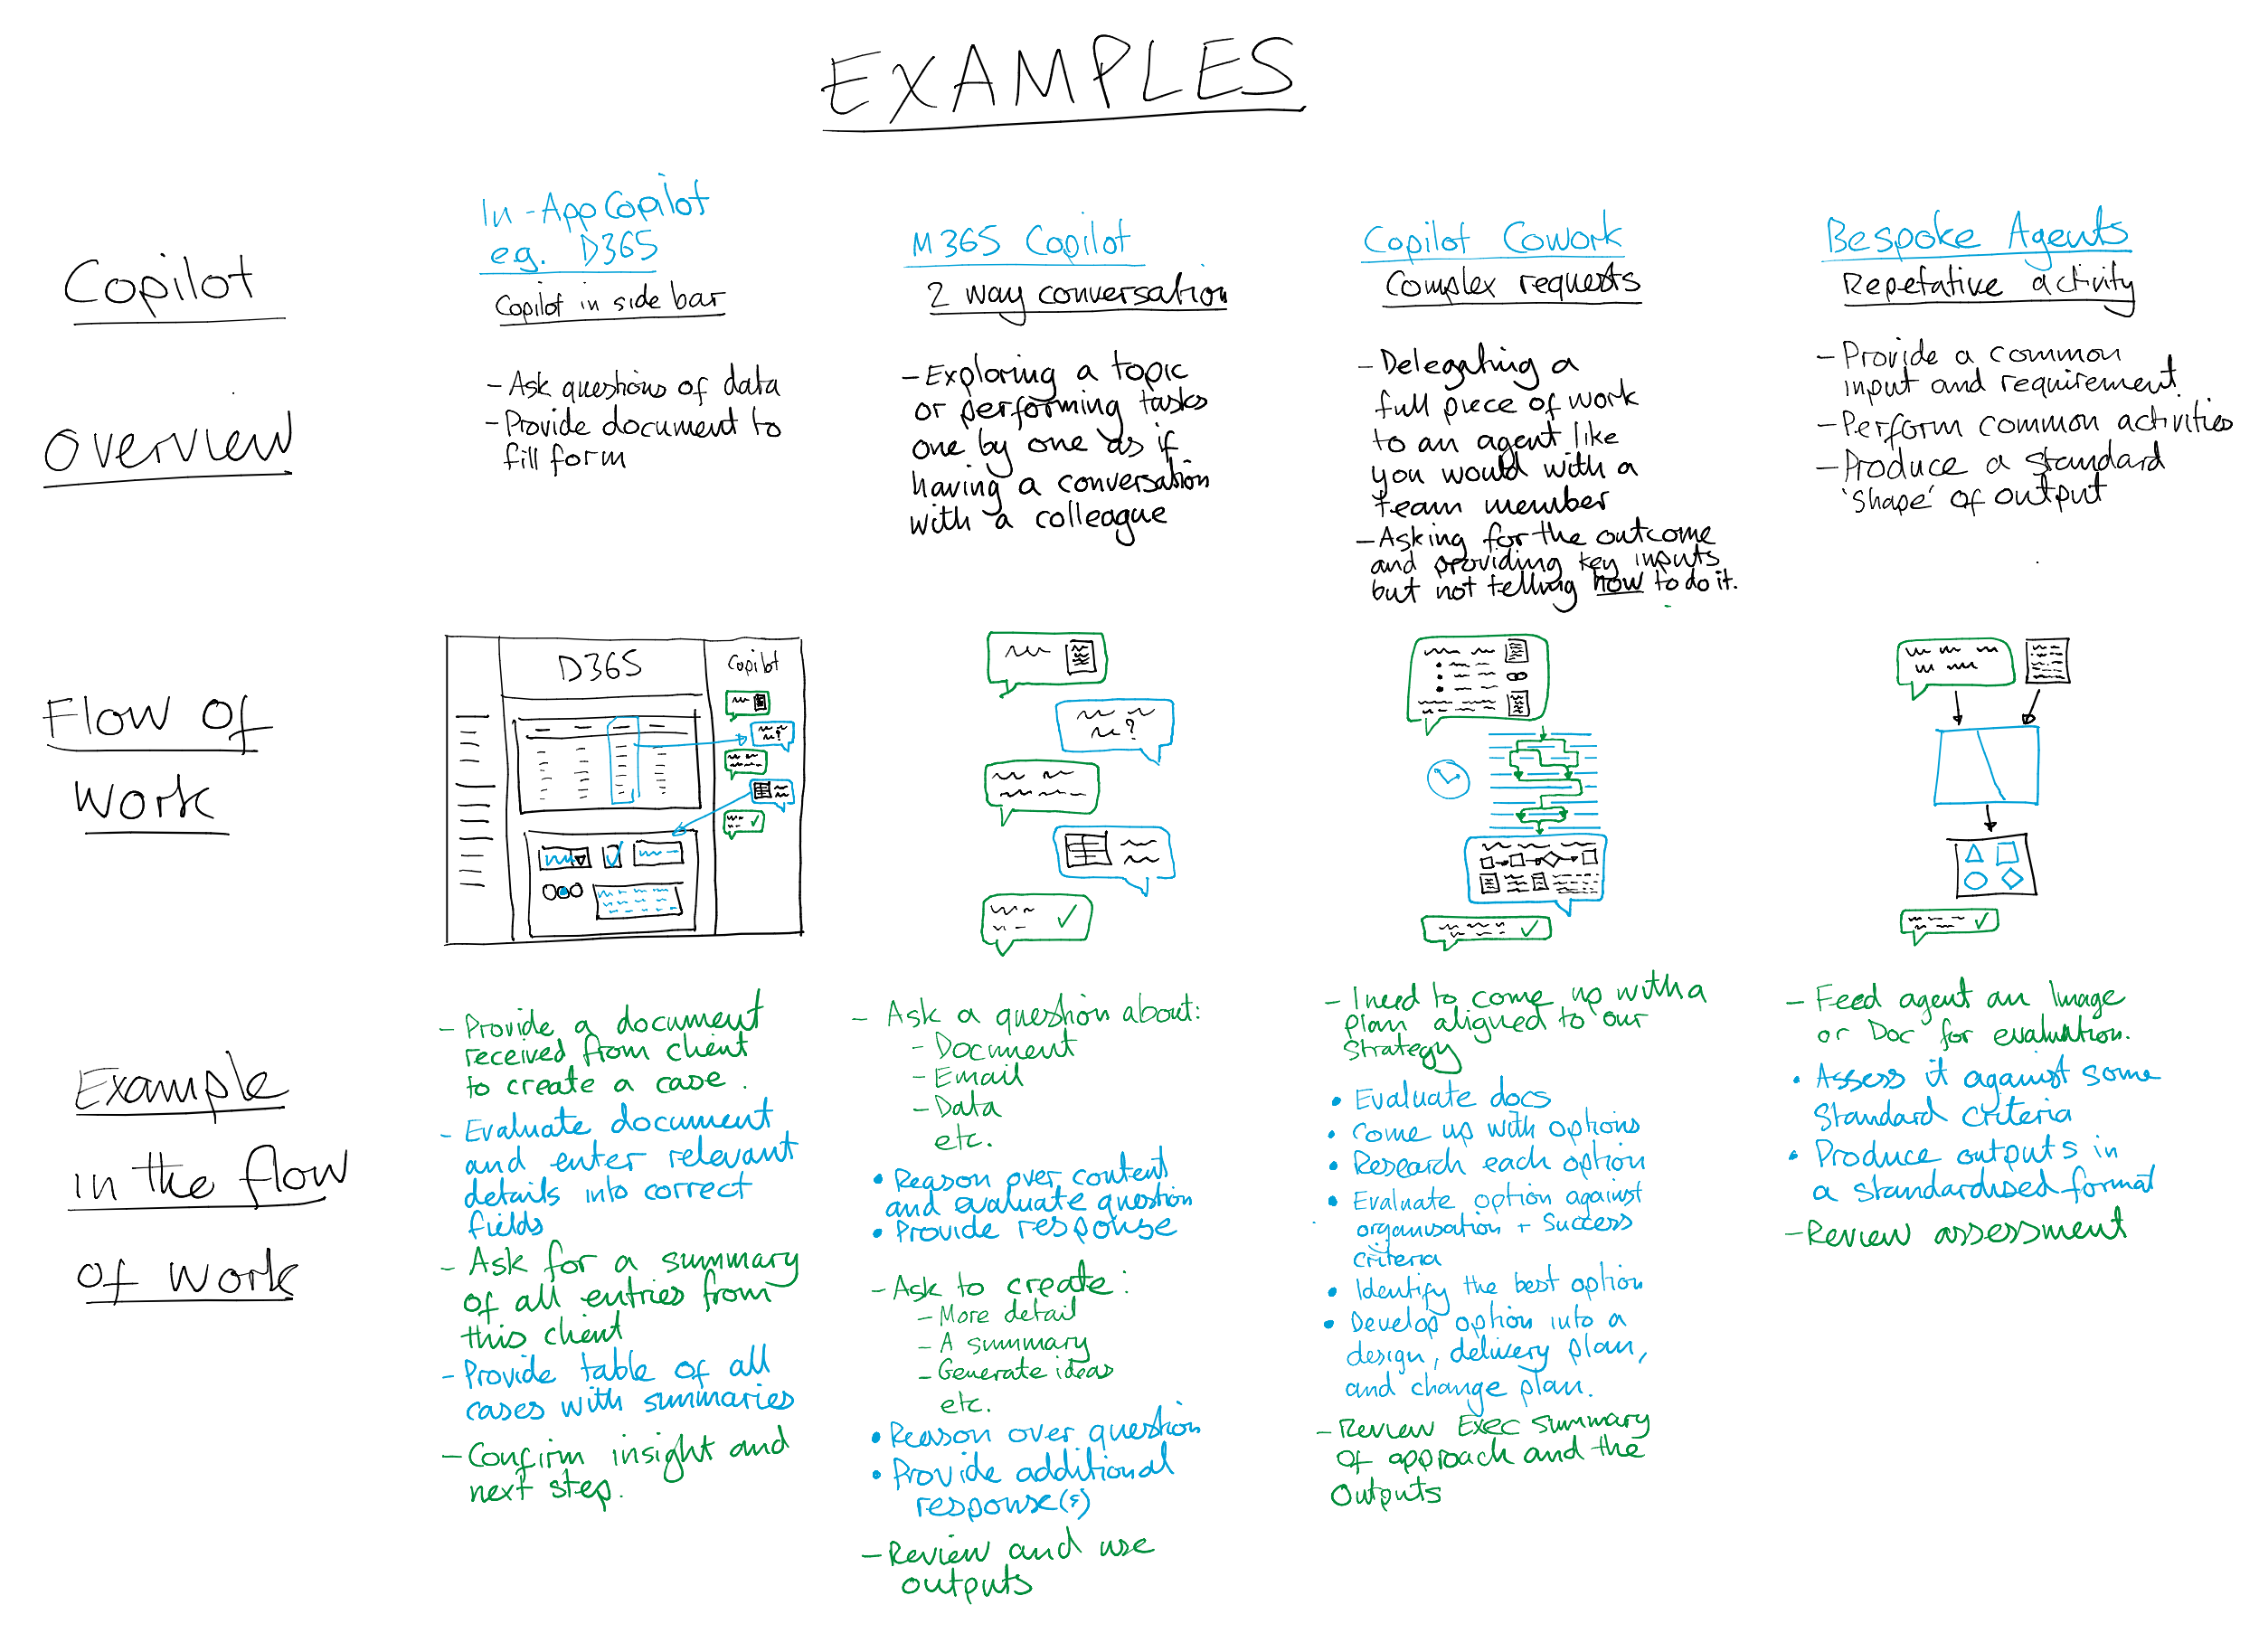 EXAMPLES
Copilot
In-App Copilot
e.g. D365
Copilot in side bar
M365 Copilot
2 way conversation
Copilot Cowork
Complex requests
Bespoke Agents
Repetative activity
Overview
- Ask questions of data
- Provide document to
fill form
- Exploring a topic
or performing tasks
one by one as if
having a conversation
with a colleague
- Delegating a
full piece of work
to an agent like
you would with a
team member
- Asking for the outcome
and providing key inputs
but not telling how to do it.
- Provide a common
input and requirement.
- Perform common activities
- Produce a standard
'shape' of output
Flow of
Work
D365
Copilot
?
?
Example
in the flow
of work
- Provide a document
received from client
to create a case.
- Evaluate document
and enter relevant
details into correct
fields
- Ask for a summary
of all entries from
this client
- Provide table of all
cases with summaries
- Confirm insight and
next step.
- Ask a question about:
- Document
- Email
- Data
etc.
• Reason over content
and evaluate question
• Provide response
- Ask to create:
- More detail
- A summary
- Generate ideas
etc.
• Reason over question
• Provide additional
response(s)
- Review and use
outputs
- I need to come up with a
plan aligned to our
strategy
• Evaluate docs
• Come up with options
• Research each option
• Evaluate option against
organisation + Success
criteria
• Identify the best option
• Develop option into a
design, delivery plan,
and change plan.
- Review Exec summary
of approach and the
Outputs
- Feed agent an Image
or Doc for evaluation.
• Assess it against some
Standard Criteria
• Produce outputs in
a standardised format
- Review assessment